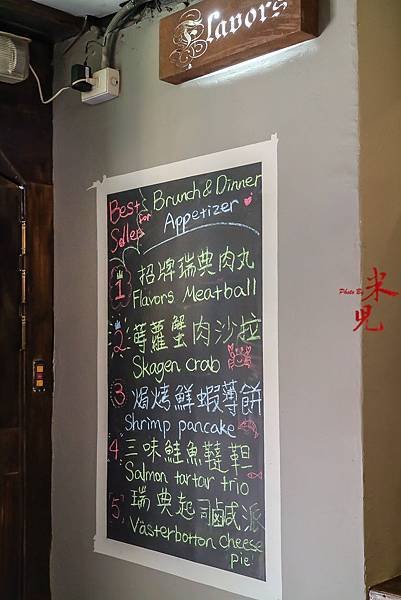 Flavors
Best Seller
for
Brunch & Dinner
Appetizer
1 招牌瑞典肉丸
Flavors Meatball
2 蒔蘿蟹肉沙拉
Skagen crab
3 焗烤鮮蝦薄餅
Shrimp pancake
4 三味鮭魚韃靼
Salmon tartar trio
5 瑞典起司鹹派
Västerbotton cheese
pie
Photo By
米兒